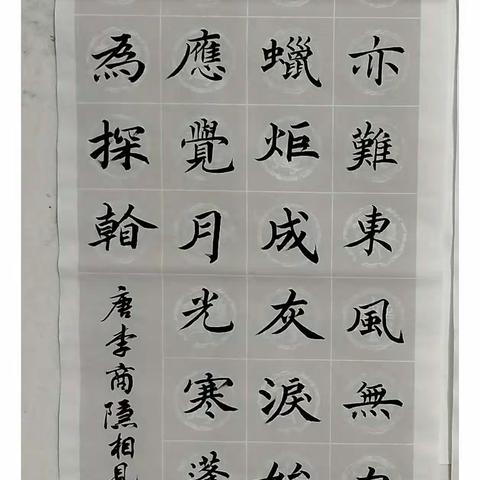 亦難東風無
蠟炬成灰淚始
應覺月光寒蓬
為探
唐李商隱相見